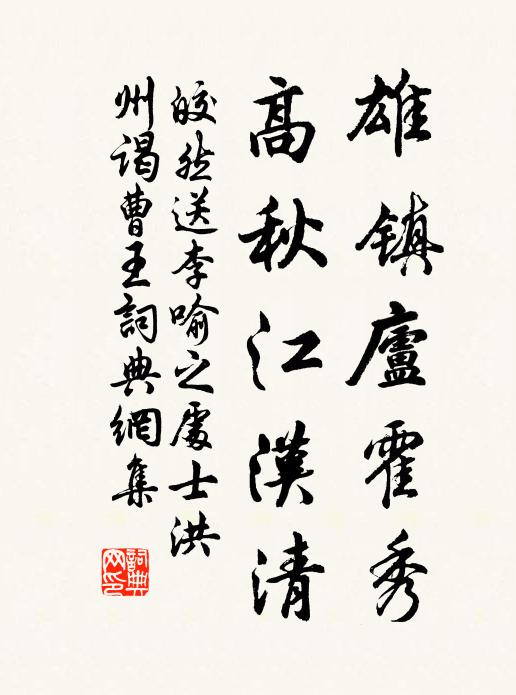 雄镇廬霍秀
高秋江漢清
皎然送李喻之處士洪
州谒曹王詞典網集
詞典网印